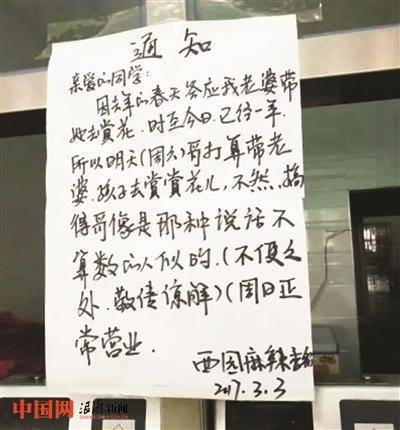 通知
亲爱的同学:
因去年的春天答应我老婆带
她去赏花.时至今日.已经一年.
所以明天(周六)哥打算带老
婆.孩子去赏赏花儿,不然,搞
得哥像是那种说话不
算数的人似的.(不便之
处.敬请谅解)(周日正
常营业.
西园麻辣香锅
2017.3.3
中国网 浪潮新闻